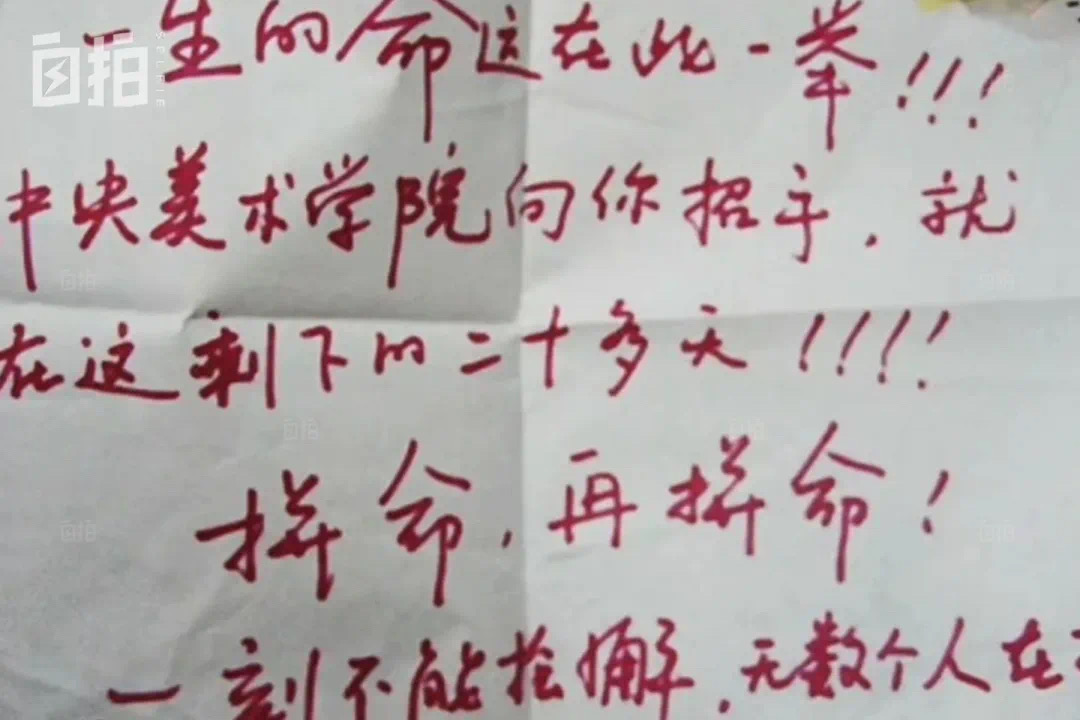 自拍
SELFIE
一生的命运在此一举!!!
中央美术学院向你招手，就
在这剩下的二十多天!!!!
拼命，再拼命!
一刻不能松懈，无数个人在